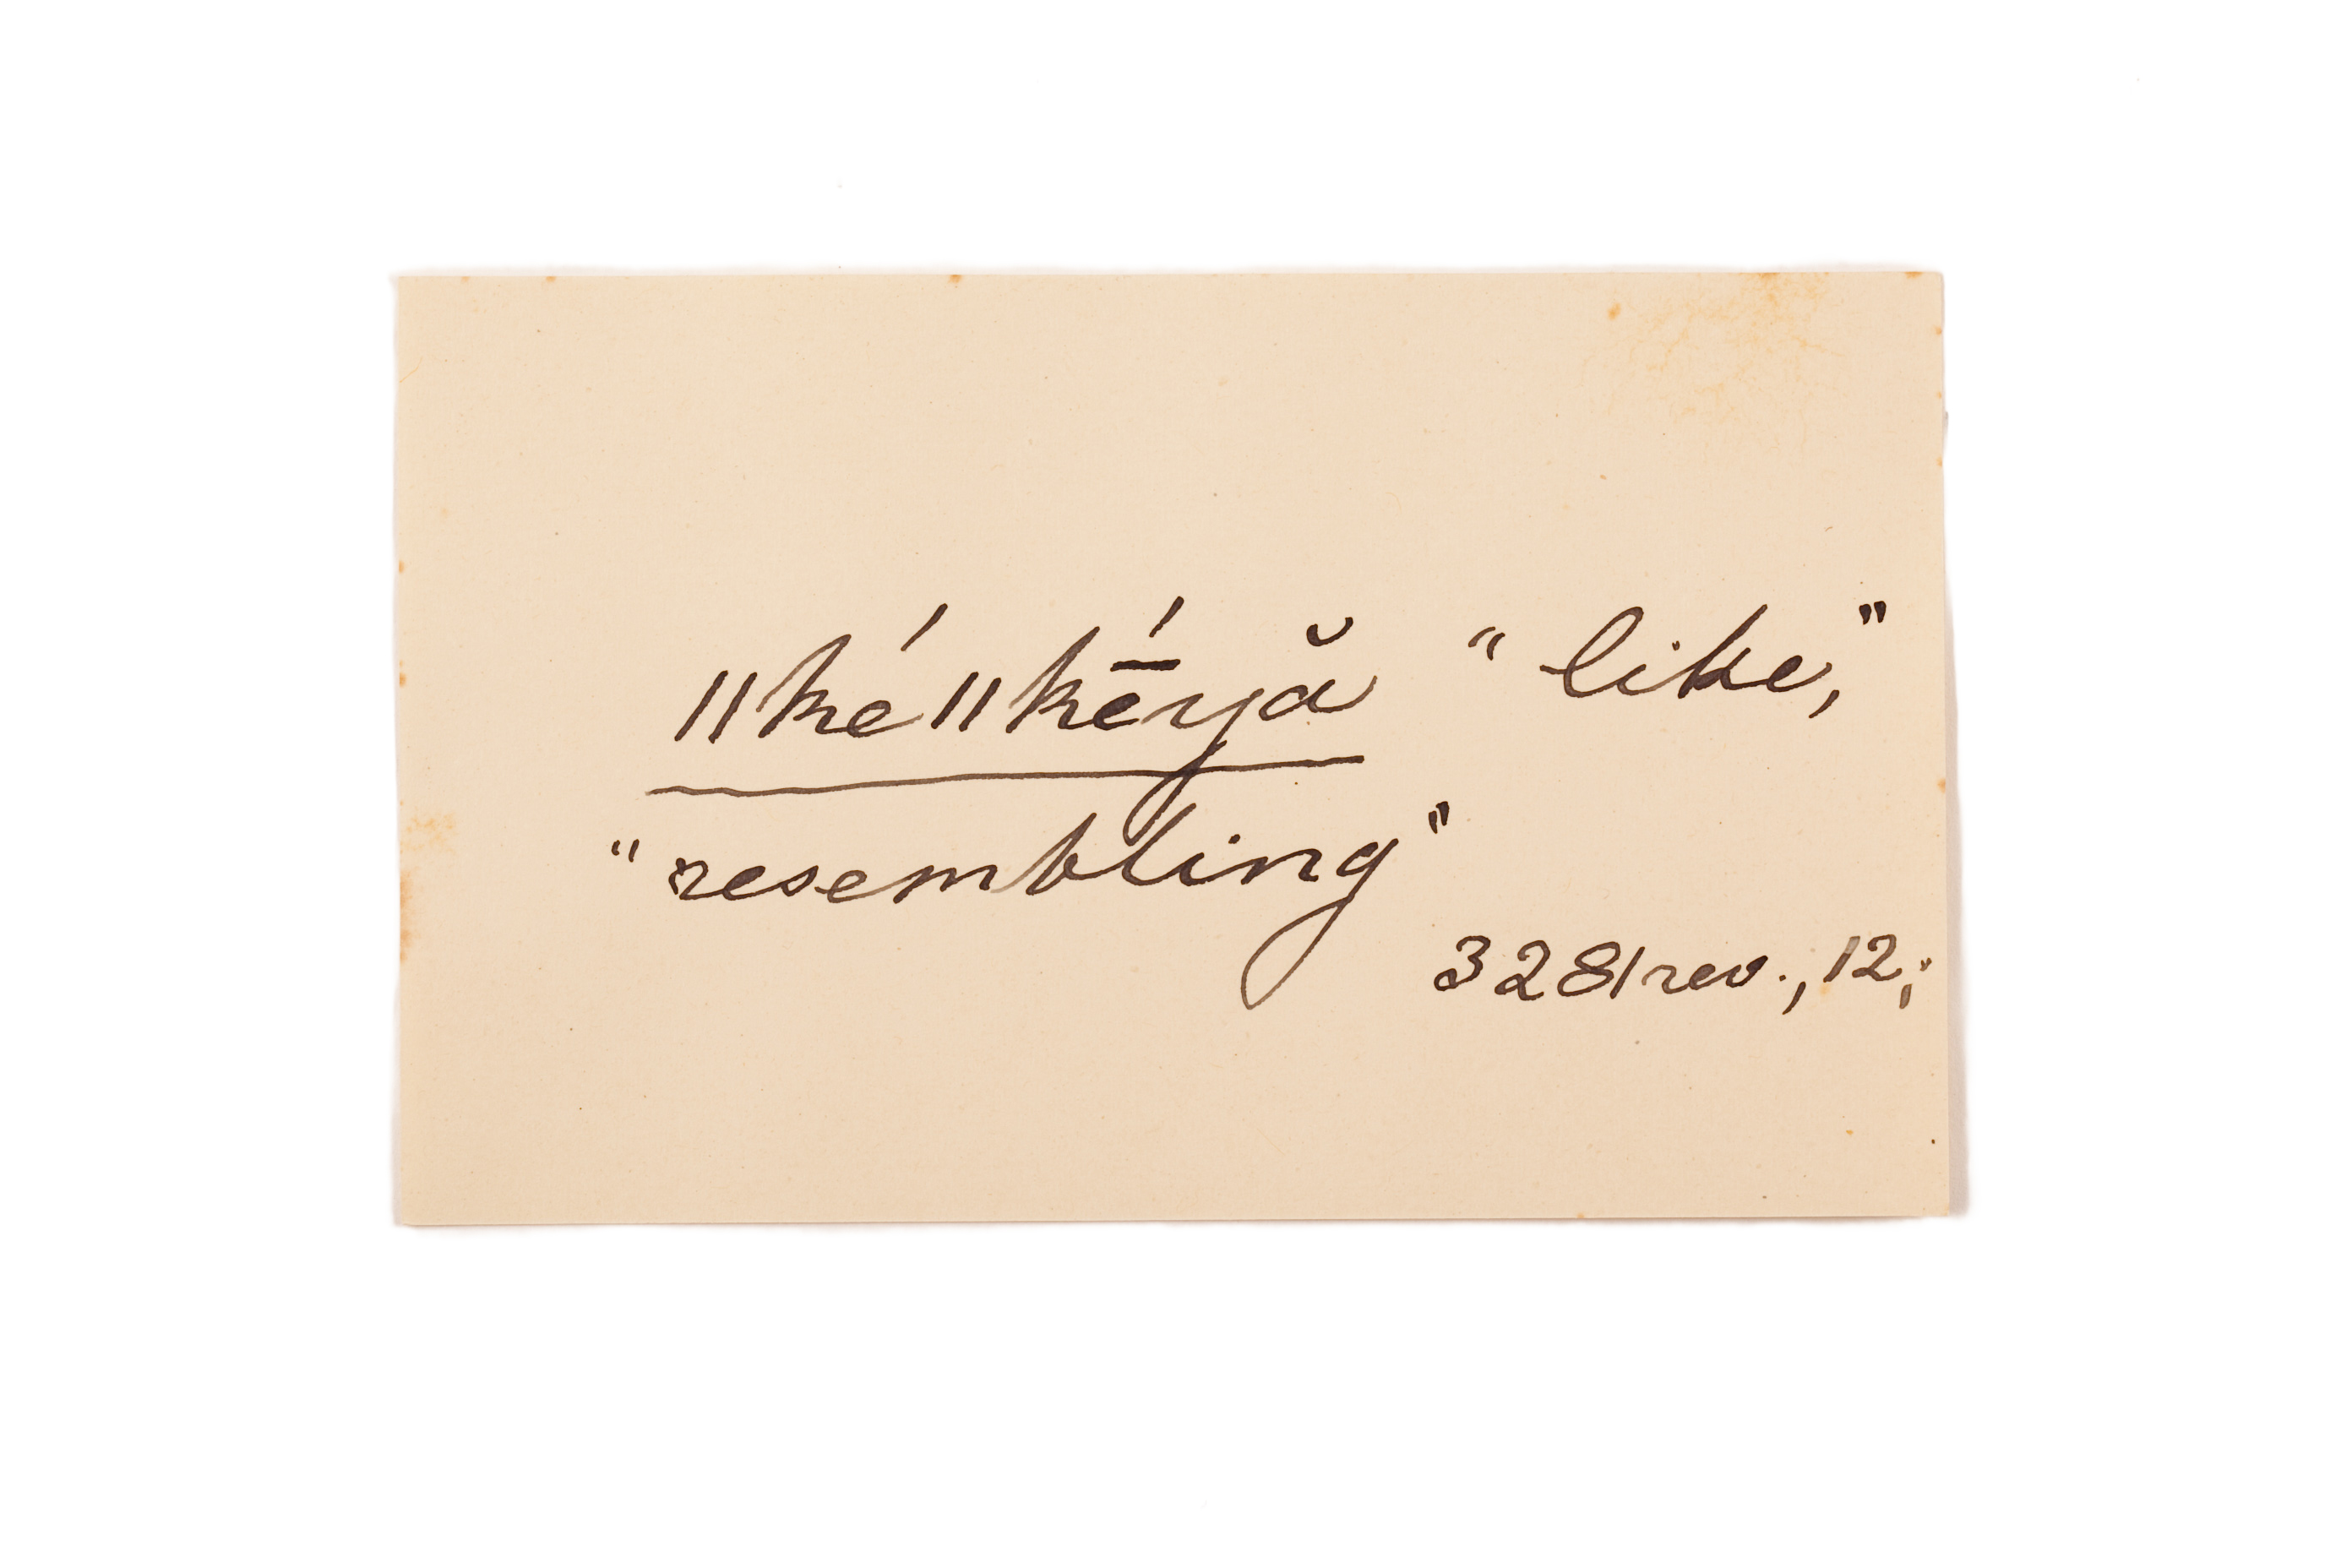 ǁké ǁkḗyă “like,”
“resembling”
3281 rev., 12;